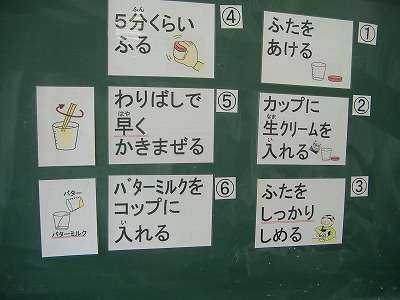 ①
ふたを
あける
②
カップに
生クリームを
なま
入れる
い
③
ふたを
しっかり
しめる
④
5分くらい
ふん
ふる
⑤
わりばしで
早く
はや
かきまぜる
⑥
バターミルクを
コップに
入れる
い
バター
バターミルク